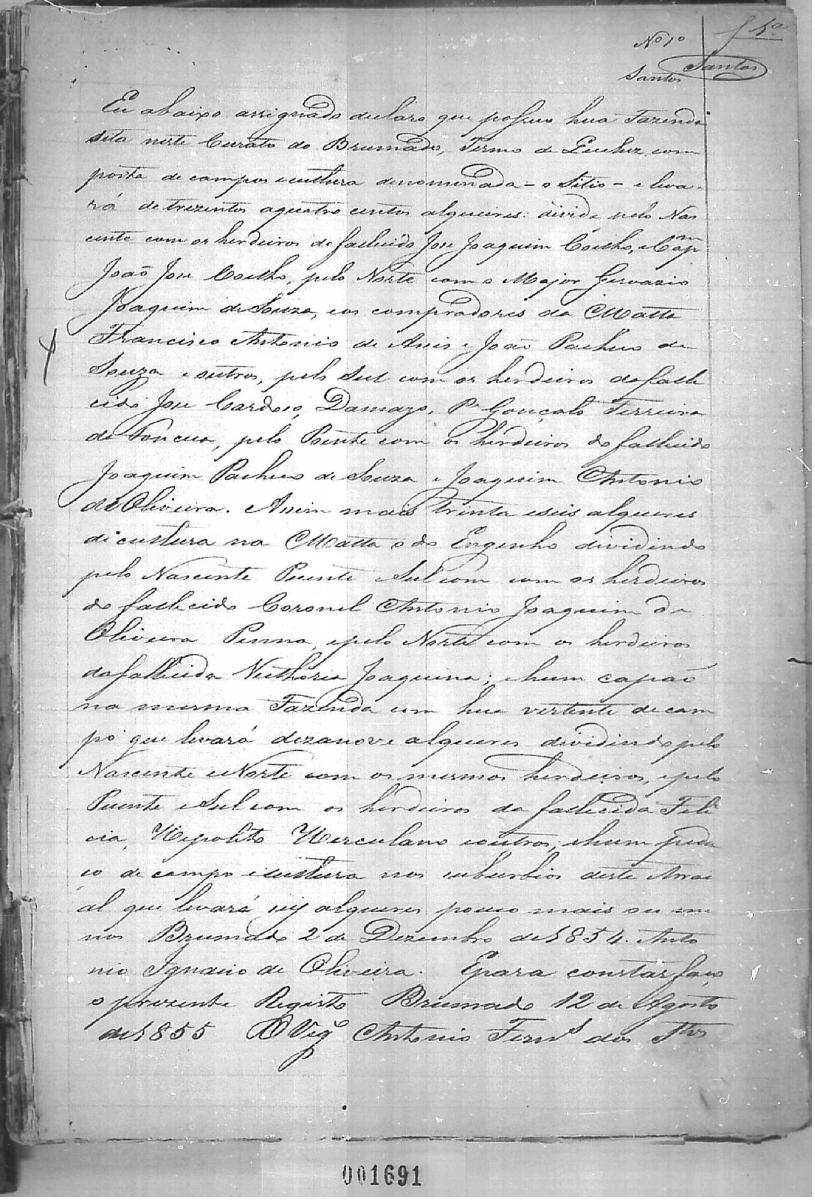 Nº 1º
Santos
f 1ª
Santos
Eu abaixo assignado declaro que possuo hua Fazenda
sita neste Curato do Brumado, Termo de Queluz, com
posta de campos e cultura denominada - o Sitio - e leva-
rá de trezentos a quatro centos alqueires: divide pelo Nas
cente com os herdeiros do fallecido Jose Joaquim Coelho, e Capm
João Jose Coelho, pelo Norte com o Major Gervazio
Joaquim de Souza, e os compradores da Matta
Francisco Antonio de Assis e João Pacheco de
Souza e outros, pelo Sul com os herdeiros do falle
cido Jose Cardoso, Damazo, Pe Gonçalo Ferreira
da Fonceca, pelo Poente com os herdeiros do fallecido
Joaquim Pacheco de Souza e Joaquim Antonio
de Oliveira. Assim mais trinta e seis alqueres
di cultura na Matta do Engenho dividindo
pelo Nascente Puente e Sul com com os herdeiros
do fallecido Coronel Antonio Joaquim de
Oliveira Penna, e pelo Norte com os herdeiros
da fallecida Victhoria Joaquina; e hum capaõ
na mesma Fazenda com hua vertente de cam
po que levará dezanove alqueres dividindo pelo
Nascente e Norte com os mesmos herdeiros, e pelo
Puente e Sul com os herdeiros da fallecida Feli
cia, Hipolito Herculano e outros; e hum peda
ço de campo e cultura nos suburbios deste Arrai
al que levará alqueres pouco mais ou me
nos Brumado 2 de Dezembro de 1854. Anto
nio Ignacio de Oliveira. E para constar faço
o prezente Registo Brumado 12 de Agosto
de 1855 O Vigº Antonio Ferns dos Stos
001691